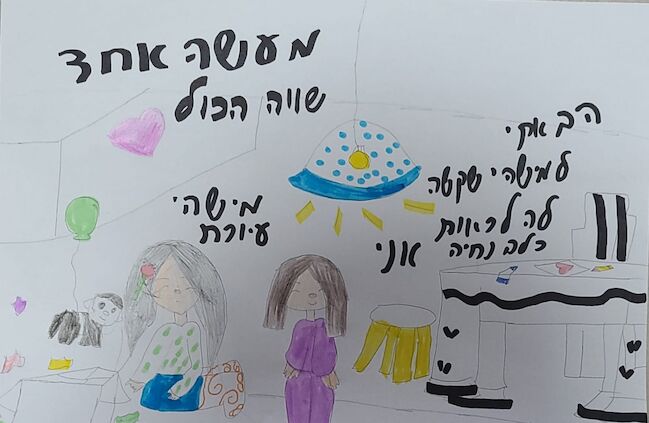 מעשה אחד
שווה הכול
הבאתי
למישהי שקשה
לה לראות
כלב נחיה
אני
מישהי
עיורת